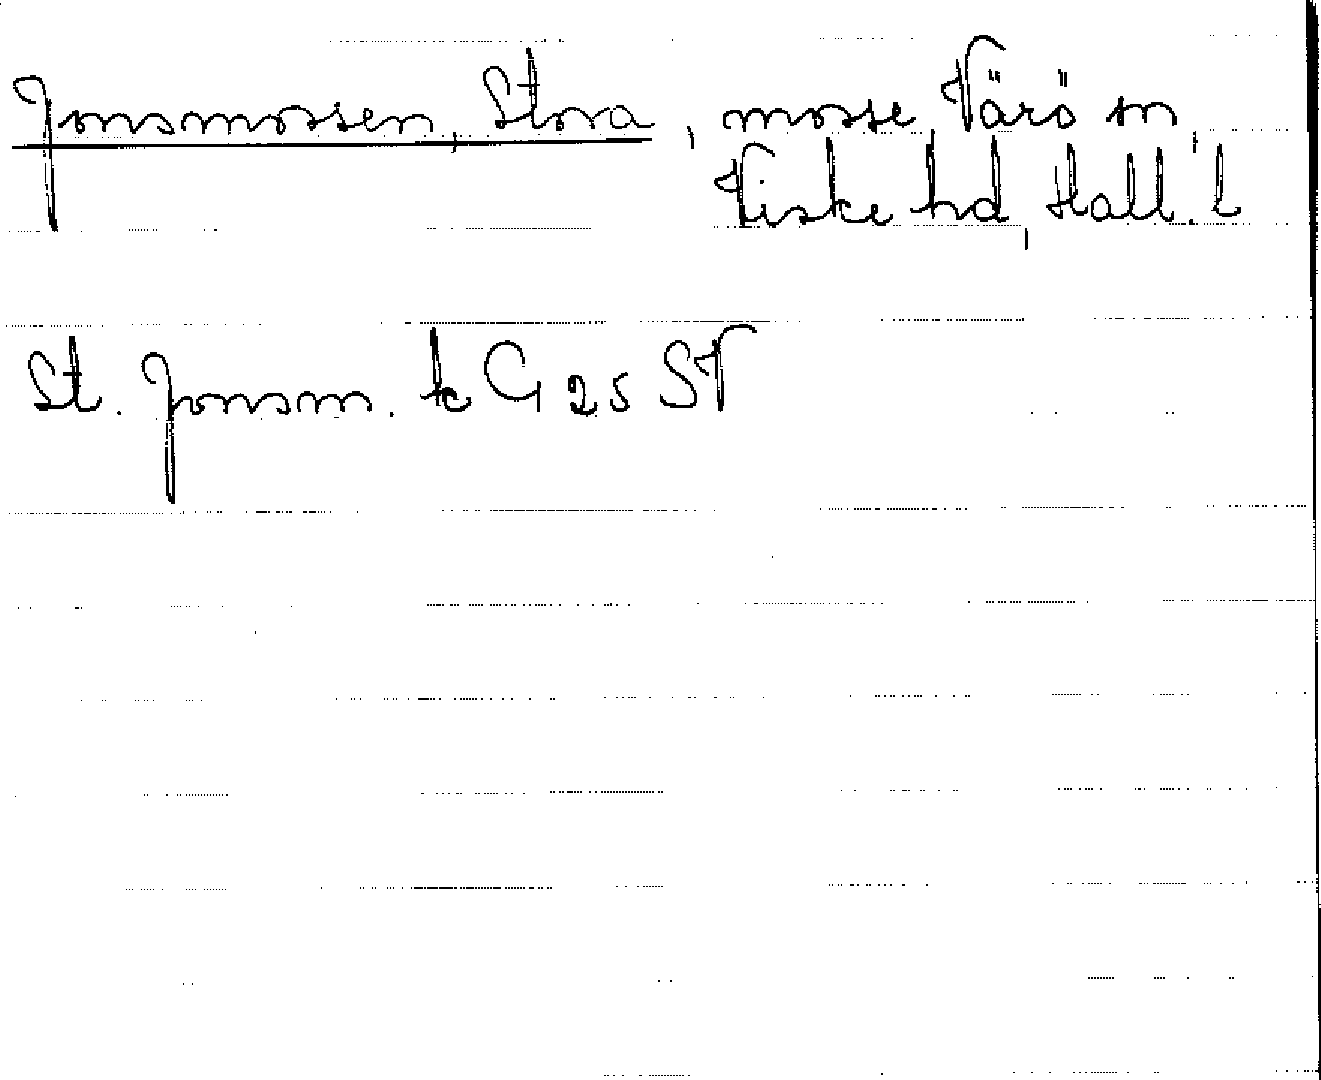 Jonsmossen, Stora, mosse Värö sn,
Viske hd, Hall. l
St. Jonsm. k G 25 SV